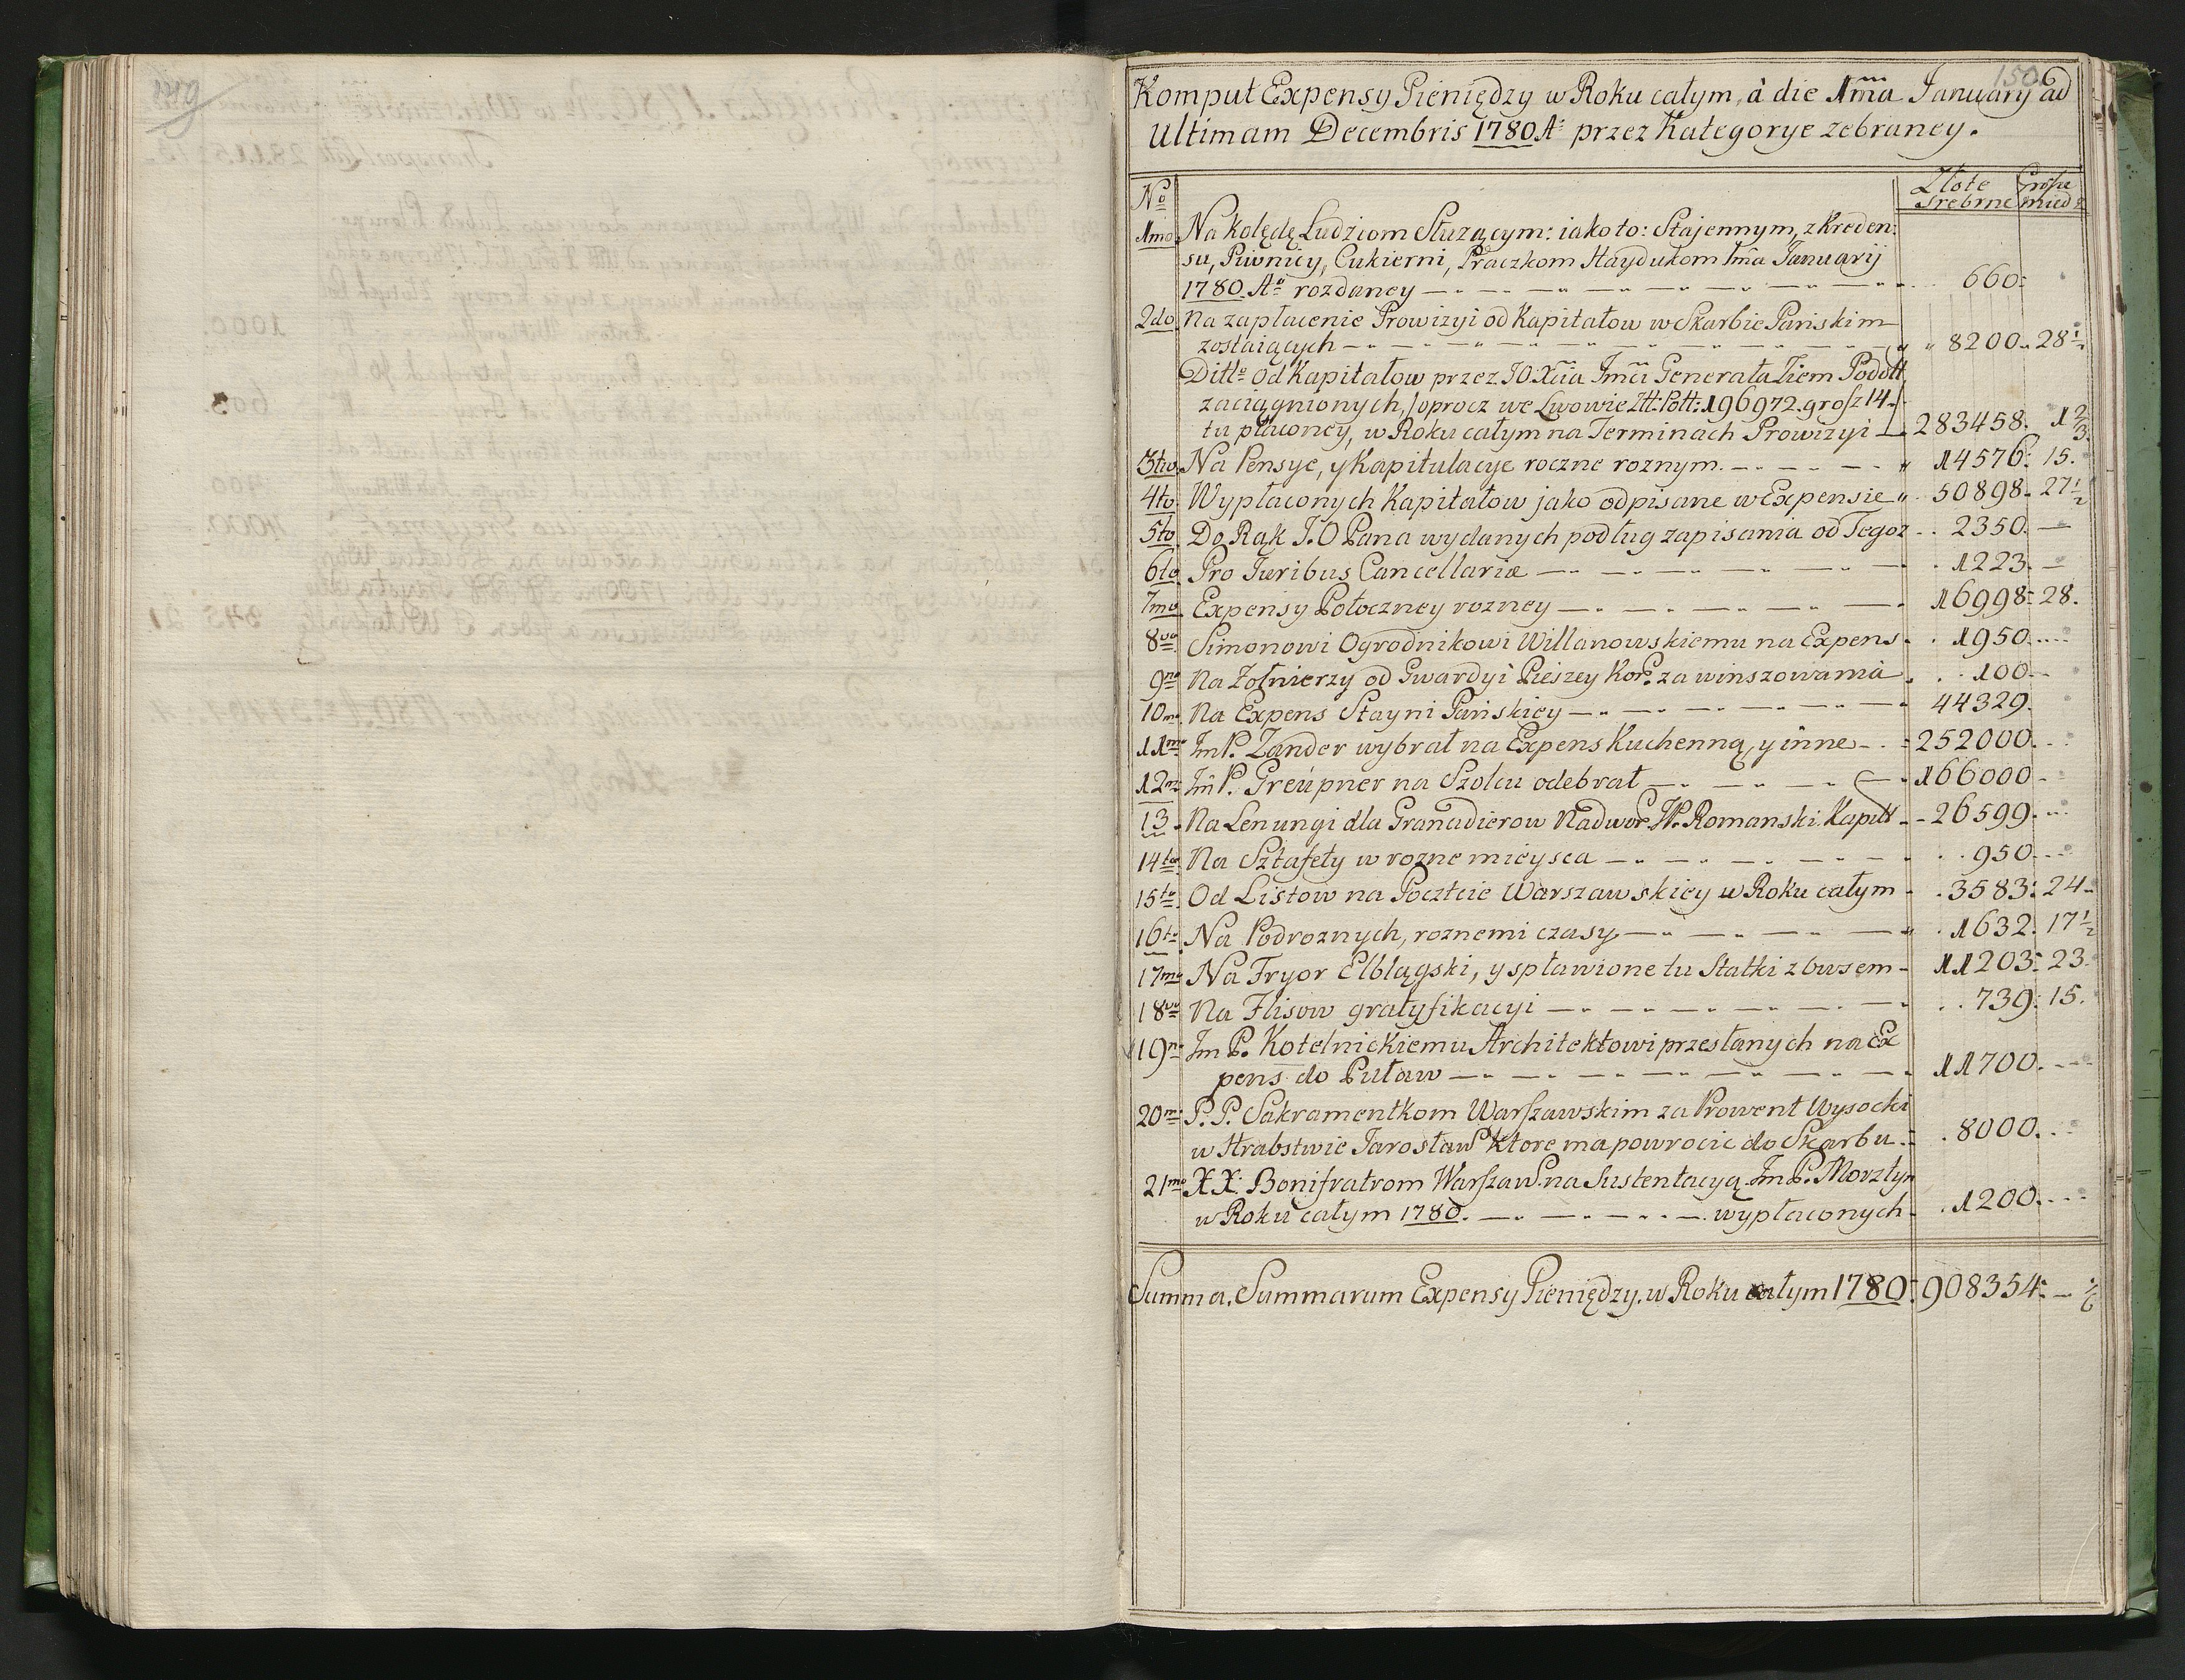 150.
Komput Expensy Pieniędzy w Roku całym, à die 1ma January ad
Ultimam Decembris 1780 Ao przez Kategorye zebraney.
No Złote Srebrne Grosze miedz
1mo Na Kolędę Ludziom Służącym: iako to: Stajennym, z Kreden:
su, Piwnicy, Cukierni, Praczkom Haydukom 1ma Januarij
1780. Ao rozdaney 660:
2do Na zapłacenie Prowizyi od Kapitałow w Skarbie Pańskim
zostaiących 8200 „ 28 1/2
Ditto od Kapitałow przez JO: Xcia Jmći Generała Ziem Podoll
zaciągnionych, /oprocz we Lwowie Ztt: Poll: 196972. grosz 14./
tu płaconey, w Roku całym na Terminach Prowizyi 283458. 1 2/3
3tio Na Pensye, y Kapitulacye roczne roznym. 14576: 15.
4to Wypłaconych Kapitałow jako odpisane w Expensie „ 50898. 27 1/2
5to Do Rąk J.O Pana wydanych podług zapisania od Tegoz 2350. —
6to Pro Juribus Cancellariæ 1223. —
7mo Expensy Potoczney rozney 16998: 28.
8vo Simonowi Ogrodnikowi Willanowskiemu na Expens 1950.
9no Na Zołnierzy od Gwardyi Pieszey Kor: za winszowania 100
10mo Na Expens Stayni Pańskiey 44329.
11mo JmP. Zander wybrał na Expens Kuchenną, y inne 252000.
12mo JmP. Greüpner na Szolcu odebrał 166000
13 Na Lenungi dla Granadierow Nadwor: JP. Romanski Kapitt 26599.
14to Na Sztafety w rozne mieysca 950
15to Od Listow na Poczcie Warszawskiey w Roku całym 3583: 24
16to Na Podroznych, roznemi czasy 1632. 17 1/2
17mo Na Fryor Elblągski, y spławione tu Statki z busem 11203: 23.
18vo Na Flisow gratyfikacyi 739: 15.
19no Jm P. Kotelnickiemu Architektowi przesłanych na Ex
pens do Puław 11700.
20mo P.P. Sakramentkom Warszawskim za Prowent Wysocki
w Hrabstwie Jarosław: ktore ma powrocic do Skarbu 8000.
21mo XX: Bonifratrom Warszaw: na Sustentacyą JmP. Morztyn
w Roku całym 1780. wypłaconych 1200.
Summa Summarum Expensy Pieniędzy, w Roku całym 1780: 908354: — 1/6